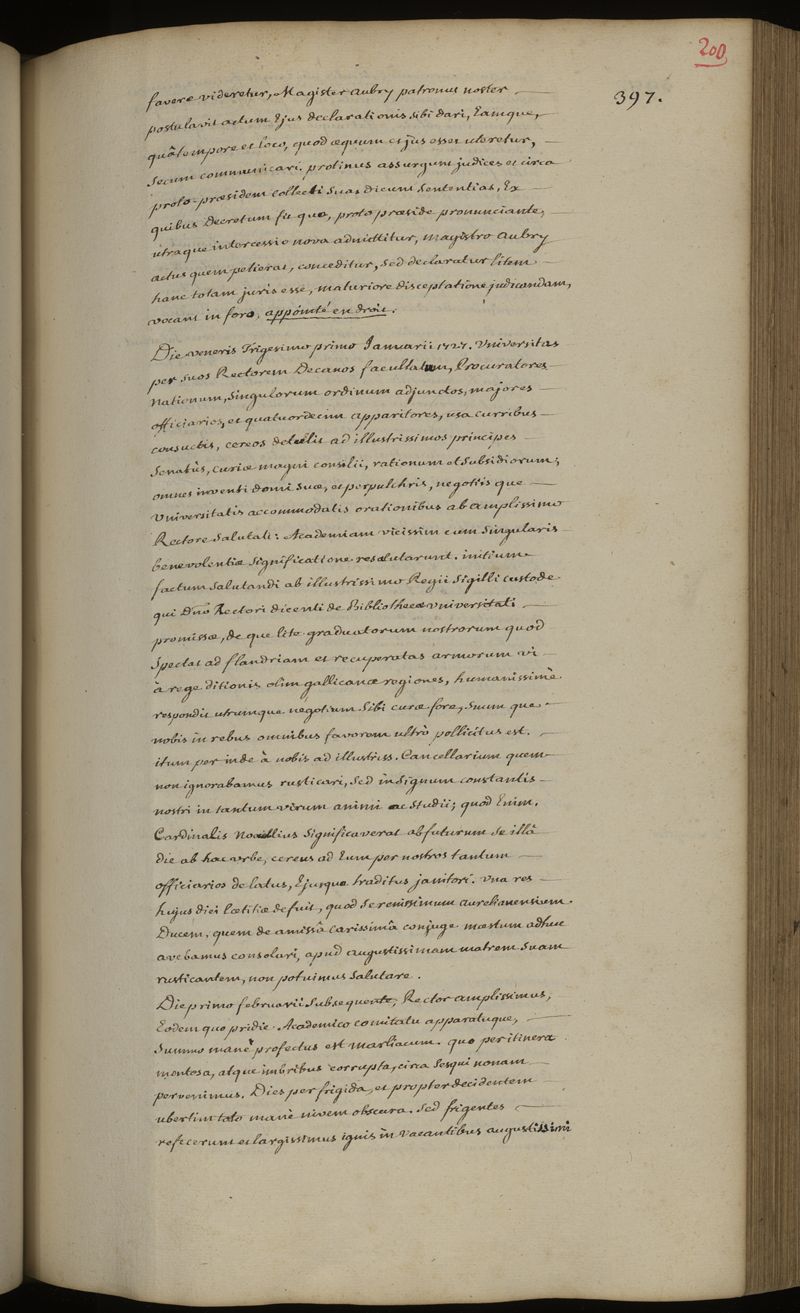 200
397.
favere videretur, Magister Aubry patronus noster
postulavit actum Ejus declarationis sibi dari, Eamque,
quâ tempore et loco, quod æquum et jus esset uteretur,
Secum communicari. protinus assurgunt judices et circa
proto-præsidem collecti Suas dicunt Sententias, Ex
quibus Decretum fit quo, proto præside pronunciante,
utraque intercessio nova admittitur, Magistro Aubry
actus quem petierat, conceditur, Sed declaratur litem
hanc totam juris esse, maturiore disceptatione judicandam,
vocant in foro, appointé en droit.
Die veneris Trigesimo primo Januarii 1727. Universitas
per suos Rectorem Decanos facultatum, Procuratores
Nationum, Singulorum ordinum adjunctos, majores
officiarios, et quatuordecim apparitores, usa curribus
consuetis, cereos detulit ad illustrissimos principes
Senatûs, curiæ magni consilii, rationum et Subsidiorum;
omnes inventi domi Suæ, et perpulchris, negotiis que
Universitatis accommodatis orationibus ab amplissimo
Rectore Salutati: Academiam vicissim cum Singularis
benevolentiæ Significatione resalutarunt. initium
factum Salutandi ab illustrissimo Regii Sigilli custode
qui Dno Rectori dicenti de Bibliotheca universitati
promissa, de que lite graduatorum nostrorum quod
Spectat ad flandriam et recuperatas armorum vi
à rege ditionis olim gallicanæ regiones, humanissimè
respondit utrumque negotium Sibi curæ fore, Suum que
nobis in rebus omnibus favorem ultrò pollicitus est.
itum per inde à nobis ad illustriss. Cancellarium quem
non ignorabamus rusticari, Sed in Signum constantis
nostri in tantum virum animi ac Studii; quod Enim
Cardinalis Noallius Significaverat abfuturum Se illâ
die ab hac urbe, cereus ad Eum per nostros tantum
officiarios delatus, Ejusque traditus janitori. Una res
hujus diei lætitiæ defuit, quod Serenissimum Aurelianensium
Ducem, quem de amissâ carissimâ conjuge mœstum adhuc
avebamus consolari, apud augustissimam matrem Suam
rusticantem, non potuimus Salutare.
Die primo februarii Subsequente, Rector amplissimus,
Eodem quo pridie Academico comitatu apparatuque,
Summo manè profectus est Marliacum. quo per itinera
montosa, atque imbribus corrupta, circa Sesqui nonam
pervenimus. Dies perfrigida, et propter decidentem
ubertim toto manè nivem obscura. Sed frigentes
refecerunt et largissimus ignis in vacantibus augustissimi